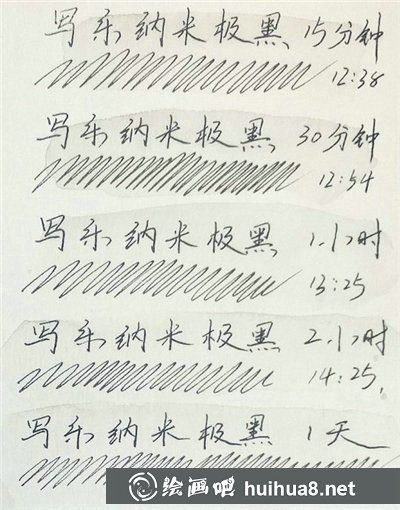 写乐纳米极黑 15分钟
12:38
写乐纳米极黑 30分钟
12:54
写乐纳米极黑 1小时
13:25
写乐纳米极黑 2小时
14:25.
写乐纳米极黑 1天
绘画吧 huihua8.net